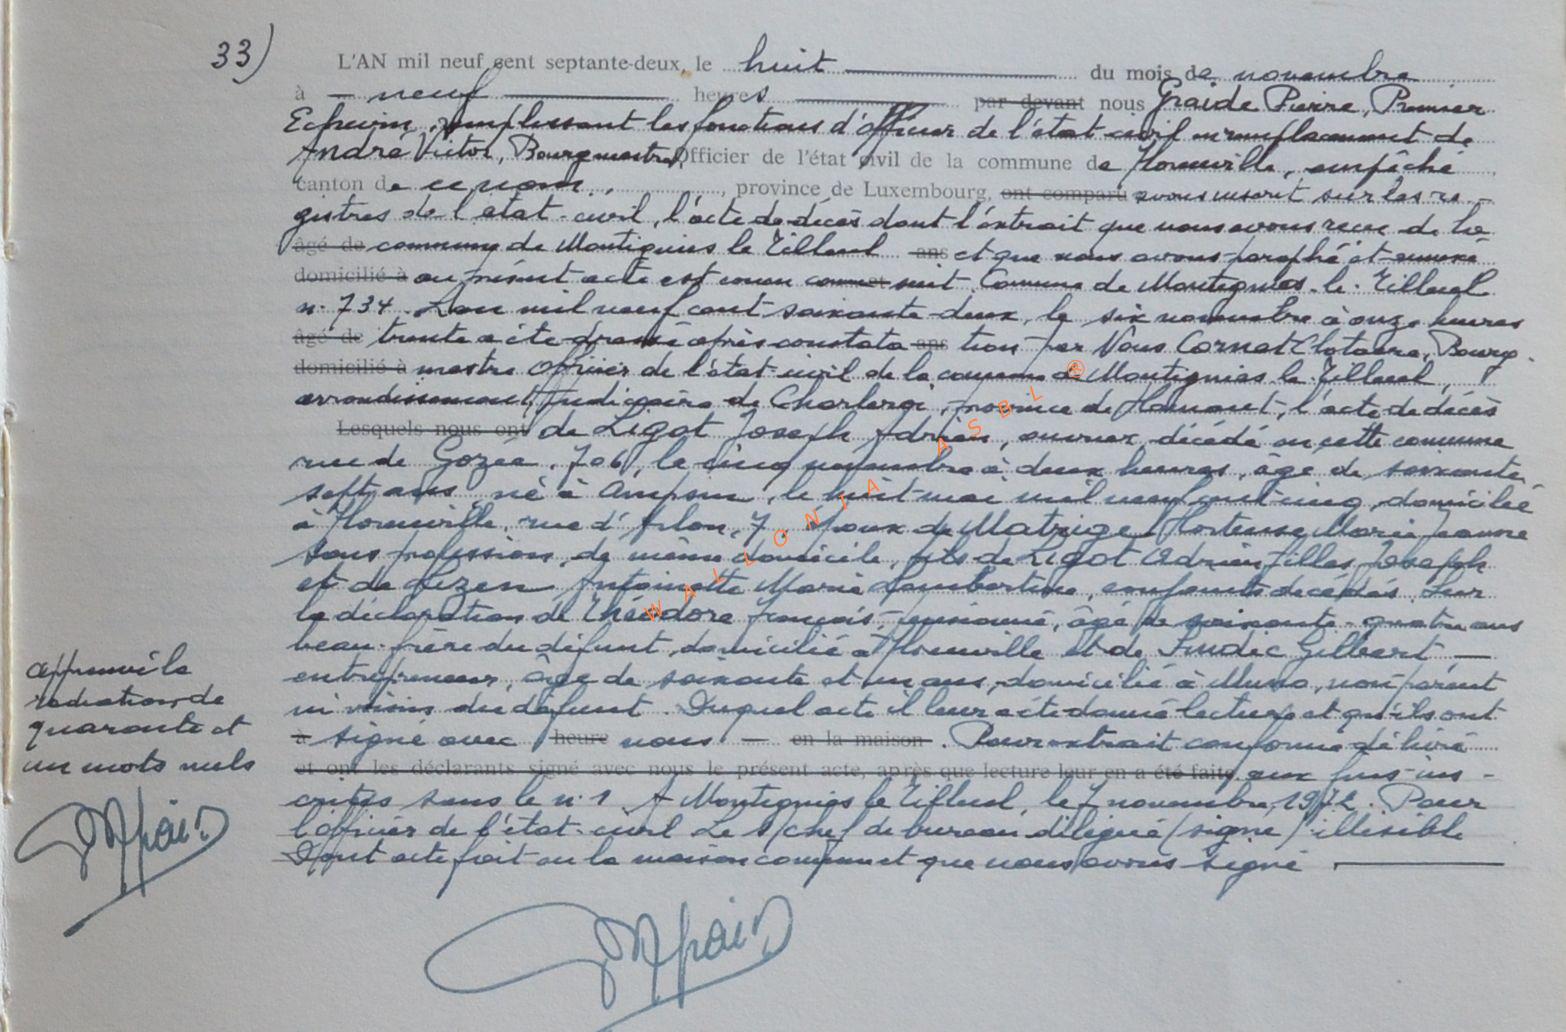 33)
L'AN mil neuf cent septante-deux, le huit du mois de novembre
à neuf heures par devant nous Graide Pierre, Premier
Echevin, remplissant les fonctions d'officier de l'état-civil en remplacement de
André Victor, Bourgmestre, Officier de l'état civil de la commune de Florenville, empêché
canton de ce nom, province de Luxembourg, ont comparu avons inscrit sur les re-
gistres de l'état-civil, l'acte de décès dont l'extrait que nous avons reçu de la
âgé de commune de Montignies le Tilleul ans et que nous avons paraphé et annexé
domicilié à au présent acte est conçu comme et suit. Commune de Montignies-le-Tilleul
n° 734. L'an mil neuf cent soixante-deux, le six novembre à onze heures
âgé de trente acte dressé après constata ans tion par Nous Cornet Clotaire, Bourg-
domicilié à mestre Officier de l'état-civil de la commune de Montignies le Tilleul,
arrondissement Judiciaire de Charleroi, province de Hainaut, l'acte de décès
Lesquels nous ont de Ligot Joseph Adrien, ouvrier, décédé en cette commune
rue de Gozée, 706, le cinq novembre à deux heures, âgé de soixante
sept ans, né à Ampsin, le huit mai mil neuf cent cinq, domicilié
à Florenville, rue d'Arlon, 7, époux de Matrige Hortense Marie Jeanne
sans profession, de même domicile, fils de Ligot Adrien Gilles Joseph
et de Lizen Antoinette Marie Lambertine, conjoints décédés. Sur
la déclaration de Théodore François, pensionné, âgé de soixante-quatre ans
beau-frère du défunt, domicilié à Florenville et de Gilbert,
entrepreneur, âgé de soixante et un ans, domicilié à Muno, non parent
ni voisin du défunt. Duquel acte il leur a été donné lecture et qu'ils ont
à signé avec heure nous en la maison. Pour extrait conforme délivré
et ont les déclarants signé avec nous le présent acte, après que lecture leur en a été faite aux fins ins-
crites sous le n° 1. A Montignies le Tilleul, le 7 novembre 1972. Pour
l'officier de l'état-civil Le S/chef de bureau délégué (signé) illisible
Dont acte fait en la maison commune et que nous avons signé
approuvé la
radiation de
quarante et
un mots nuls
WALLONIA ASBL ®